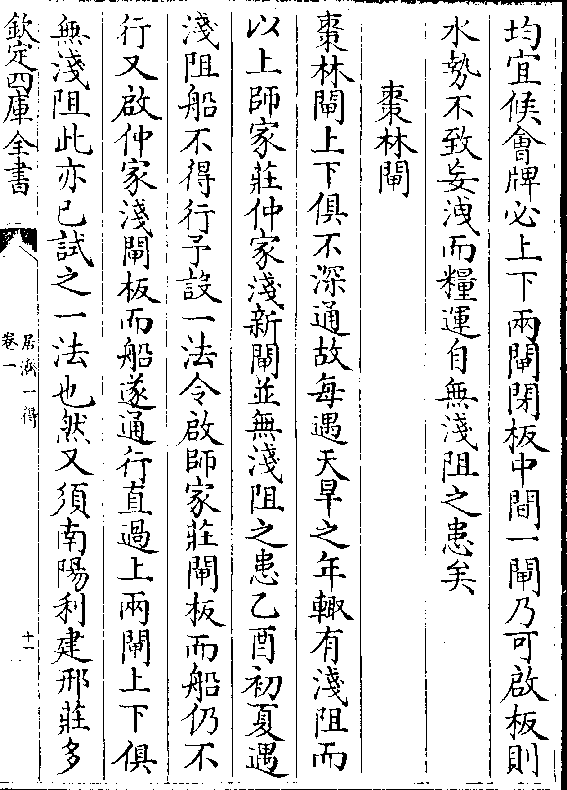 均宜候會牌必上下兩閘閉板中間一閘乃可啟板則
水勢不致妄洩而糧運自無淺阻之患矣
棗林閘
棗林閘上下俱不深通故每遇天旱之年輙有淺阻而
以上師家莊仲家淺新閘並無淺阻之患乙酉初夏遇
淺阻船不得行予設一法令啟師家莊閘板而船仍不
行又啟仲家淺閘板而船遂通行直過上兩閘上下俱
無淺阻此亦已試之一法也然又須南陽利建邢莊多
欽定四庫全書
居濟一得
卷一
十一